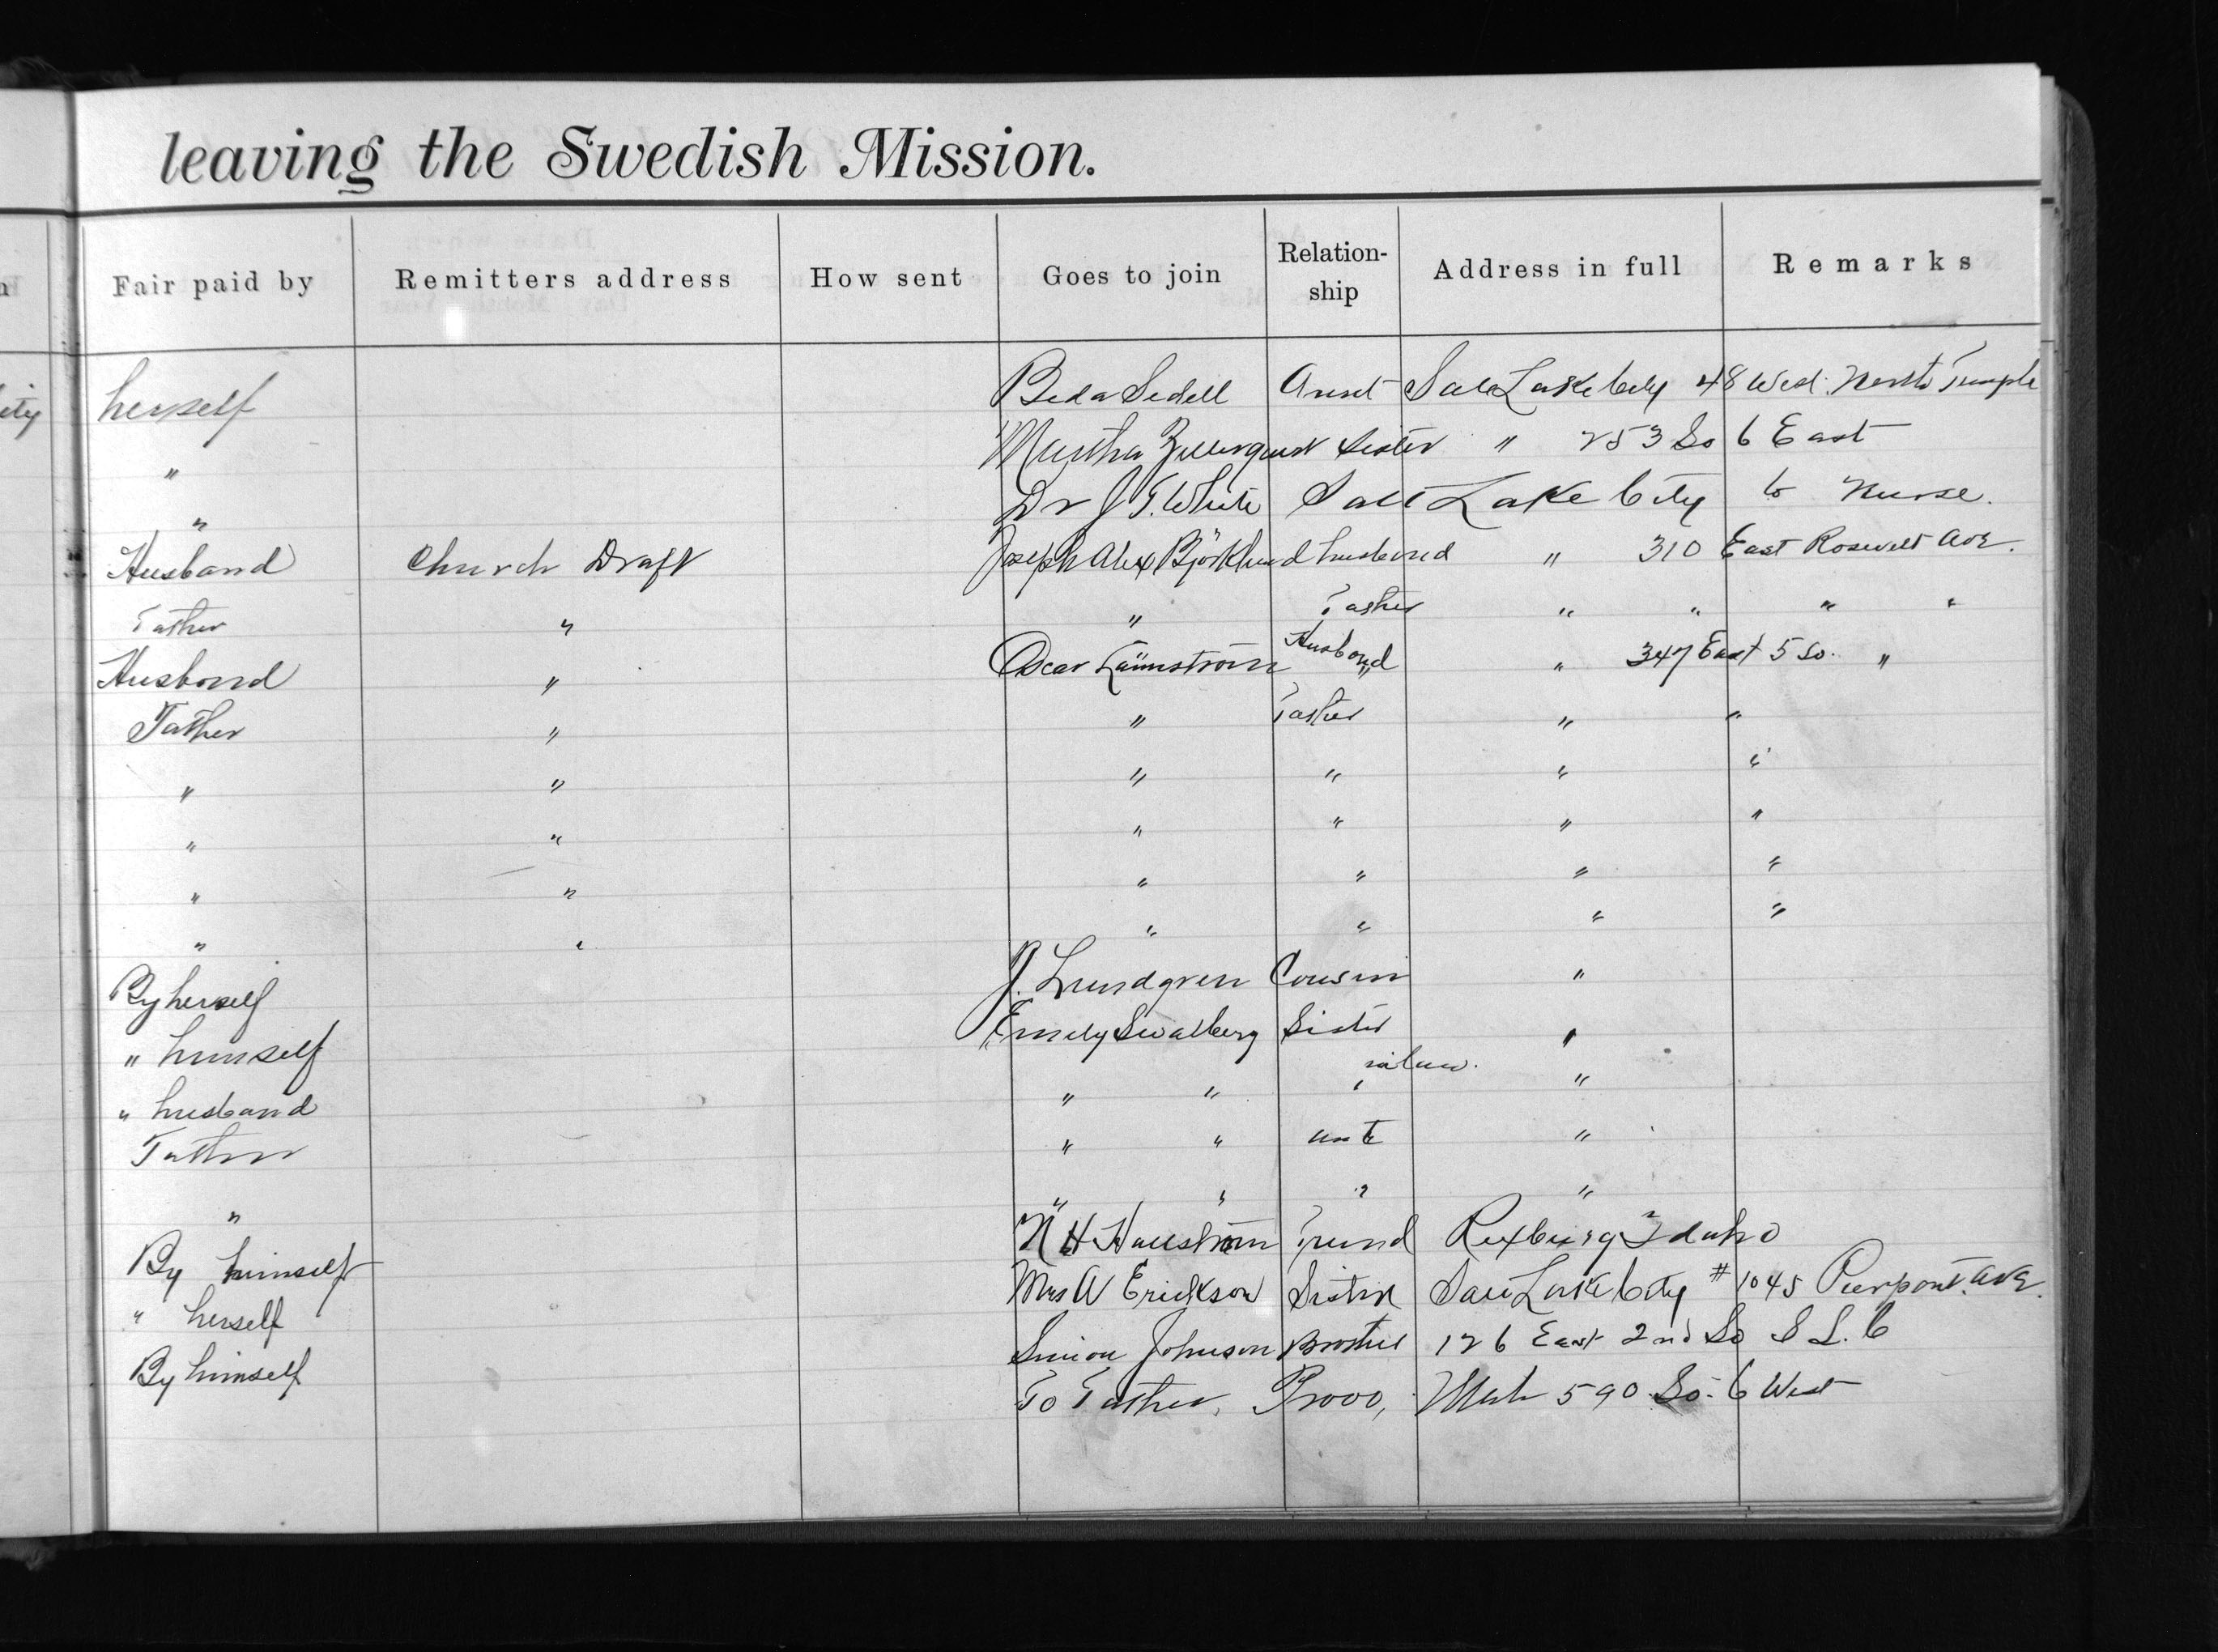 leaving the Swedish Mission.
Fair paid by Remitters address How sent Goes to join Relation-ship Address in full Remarks
ity herself Beda Sedell Aunt Salt Lake City 48 West North Temple
" Martha Sister " 253 So 6 East
" Dr J T. White Salt Lake City to Nurse.
Husband Church Draft Joseph Alex Björklund husband " 310 East Rosevelt Ave.
Father " " Father " " " "
Husband " Oscar Husband " 347 East 5 So. "
Father " " Father " "
" " " " " "
" " " " " "
" " " " " "
" " " " " "
By herself J. Lundgren Cousin "
" himself Emely Swalberg Sister "
" husband " " " inlaw. "
Father " " ant "
" " " " "
By himself N H Hallström Friend Rexburg Idaho
" herself Mrs A Erickson Sister Salt Lake City # 1045 Pierpont. Ave.
By himself Simon Johnson Brother 126 East 2nd So S L. C
To Father, Provo, Utah 590 So. 6 West